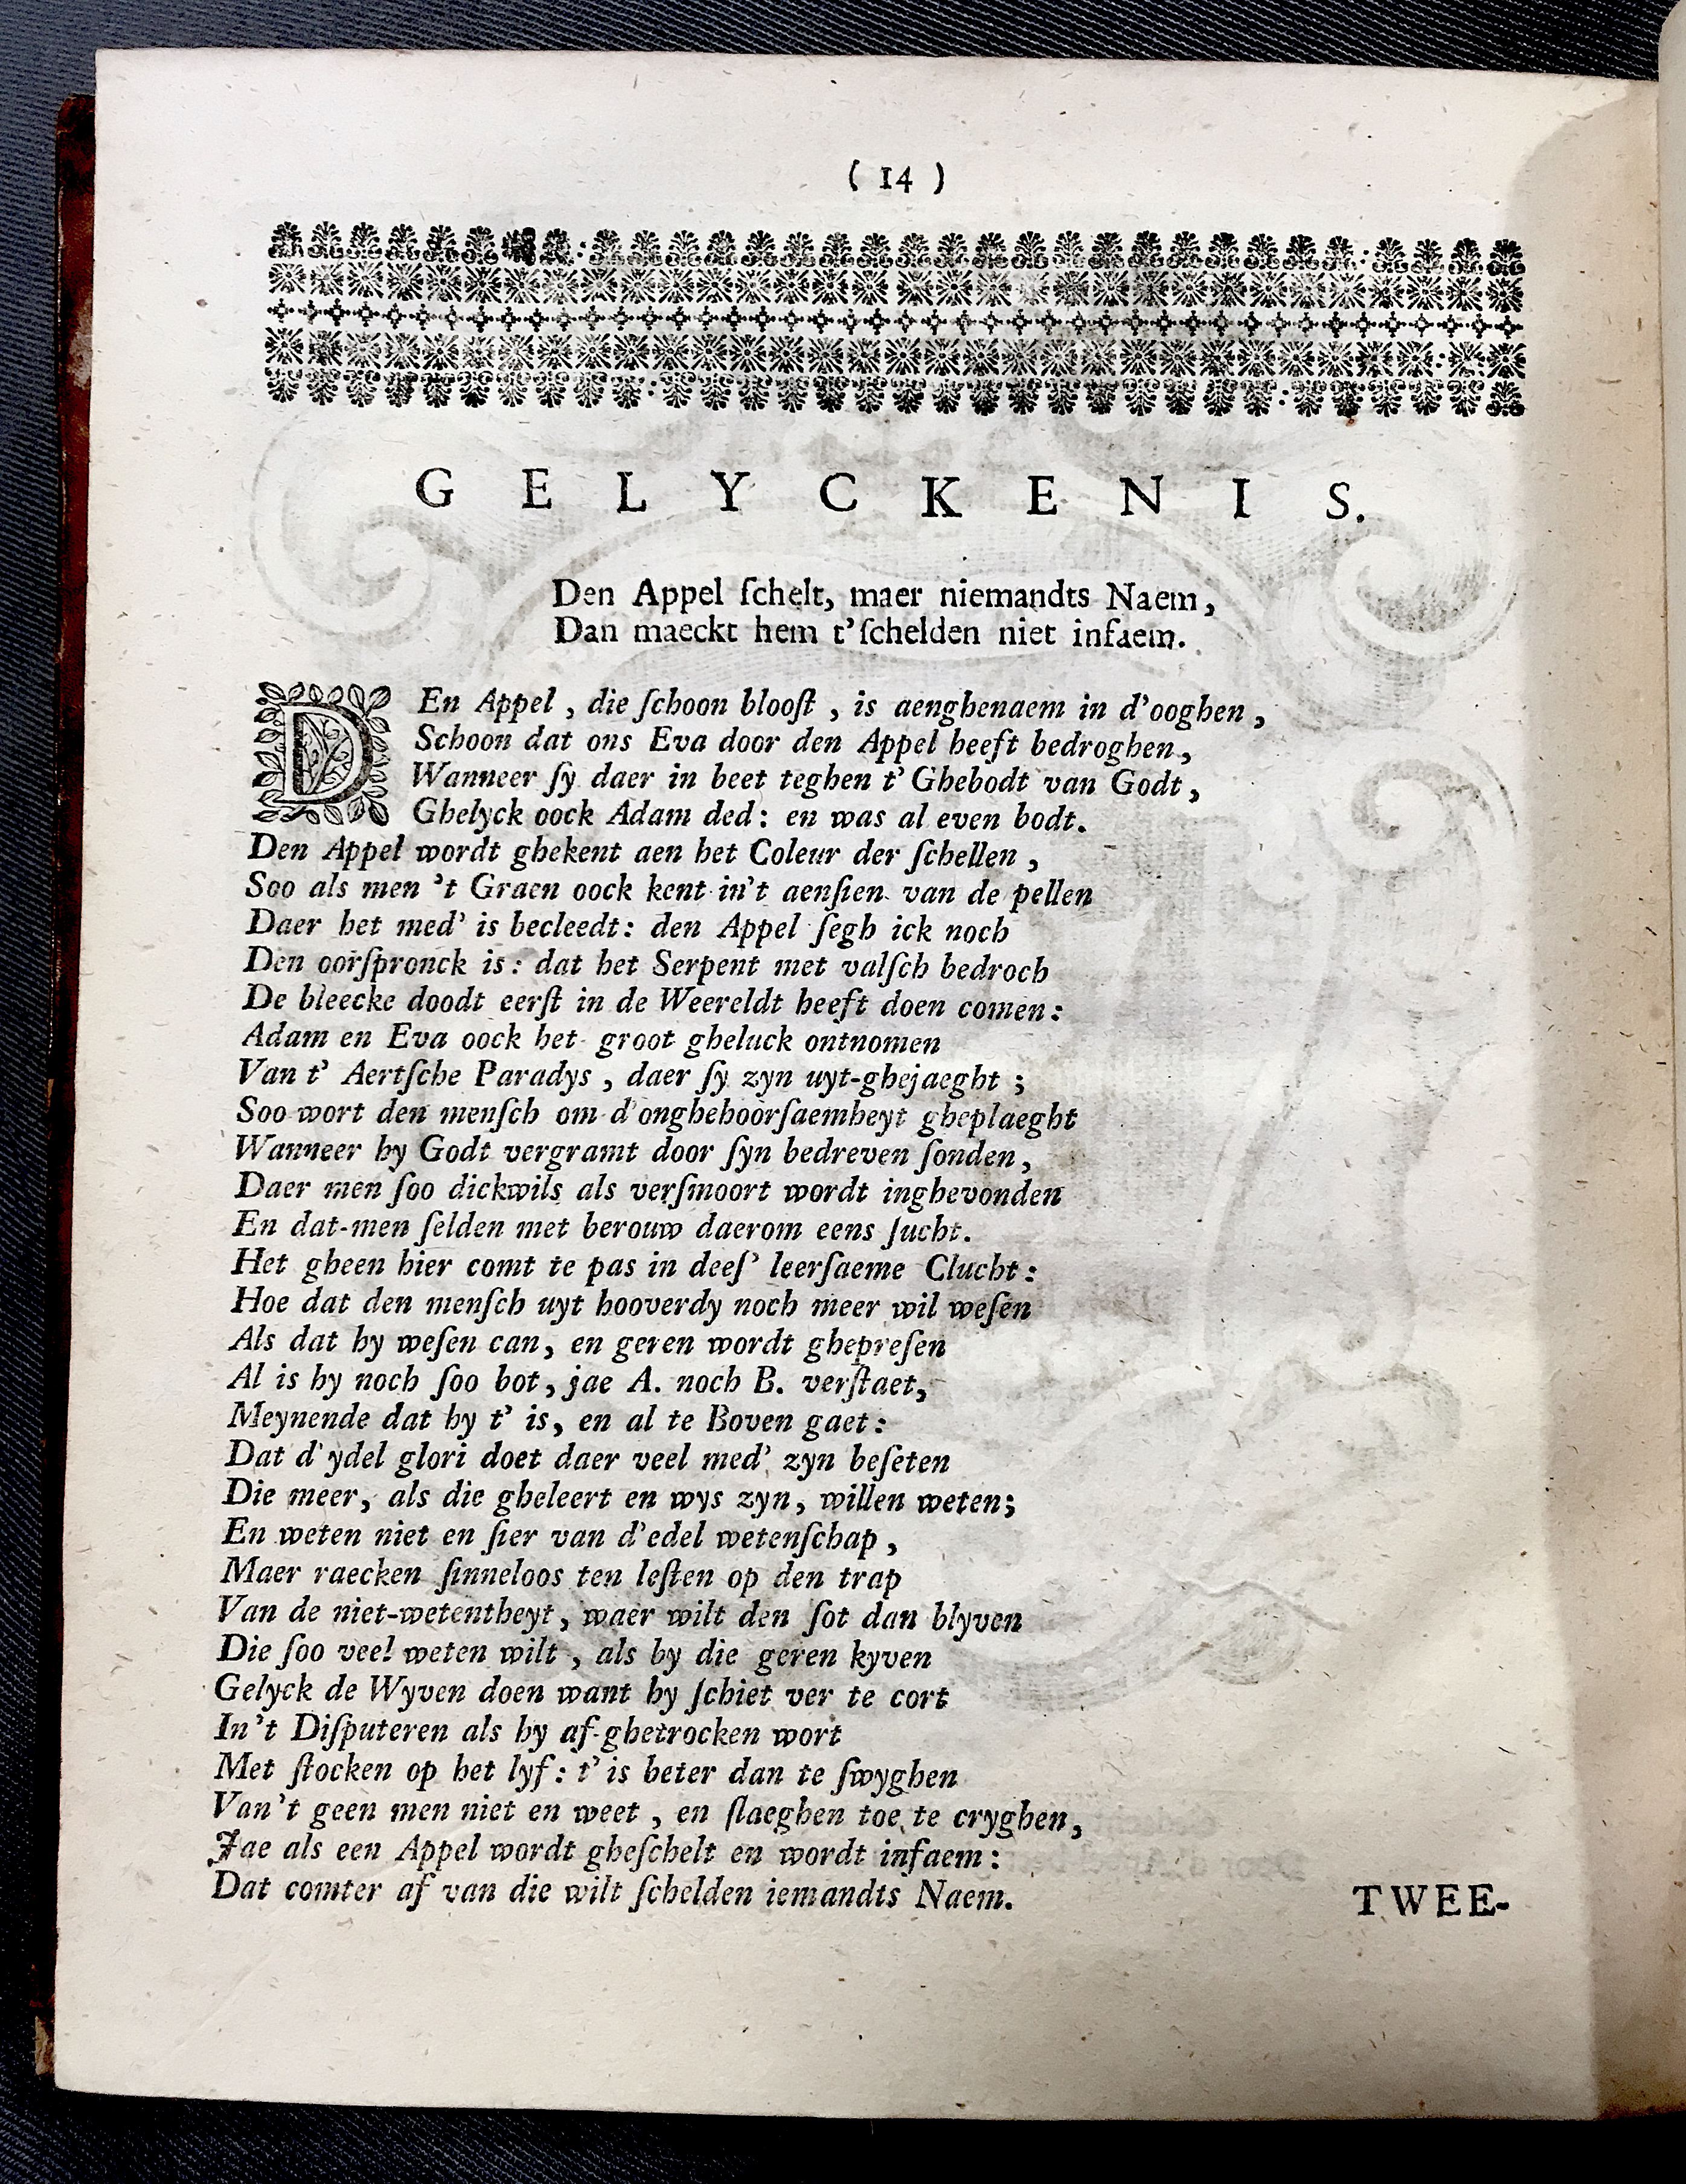 ( 14 )
GELYCKENIS.
Den Appel ſchelt, maer niemandts Naem,
Dan maeckt hem t'ſchelden niet infaem.
DEn Appel, die ſchoon blooſt, is aenghenaem in d'ooghen,
Schoon dat ons Eva door den Appel heeft bedroghen,
Wanneer ſy daer in beet teghen t' Ghebodt van Godt,
Ghelyck oock Adam ded: en was al even bodt.
Den Appel wordt ghekent aen het Coleur der ſchellen,
Soo als men 't Graen oock kent in't aenſien van de pellen
Daer het med' is becleedt: den Appel ſegh ick noch
Den oorſpronck is: dat het Serpent met valſch bedroch
De bleecke doodt eerſt in de Weereldt heeft doen comen:
Adam en Eva oock het groot gheluck ontnomen
Van t' Aertſche Paradys, daer ſy zyn uyt-ghejaeght;
Soo wort den menſch om d'onghehoorſaemheyt gheplaeght
Wanneer hy Godt vergramt door ſyn bedreven ſonden,
Daer men ſoo dickwils als verſmoort wordt inghevonden
En dat-men ſelden met berouw daerom eens ſucht.
Het gheen hier comt te pas in deeſ' leerſaeme Clucht:
Hoe dat den menſch uyt hooverdy noch meer wil weſen
Als dat hy weſen can, en geren wordt ghepreſen
Al is hy noch ſoo bot, jae A. noch B. verſtaet,
Meynende dat hy t' is, en al te Boven gaet:
Dat d'ydel glori doet daer veel med' zyn beſeten
Die meer, als die gheleert en wys zyn, willen weten;
En weten niet en ſier van d'edel wetenſchap,
Maer raecken ſinneloos ten leſten op den trap
Van de niet-wetentheyt, waer wilt den ſot dan blyven
Die ſoo veel weten wilt, als hy die geren kyven
Gelyck de Wyven doen want hy ſchiet ver te cort
In't Diſputeren als hy af-ghetrocken wort
Met ſtocken op het lyf: t' is beter dan te ſwyghen
Van't geen men niet en weet, en ſlaeghen toe te cryghen,
Jae als een Appel wordt gheſchelt en wordt infaem:
Dat comter af van die wilt ſchelden iemandts Naem.
TWEE-